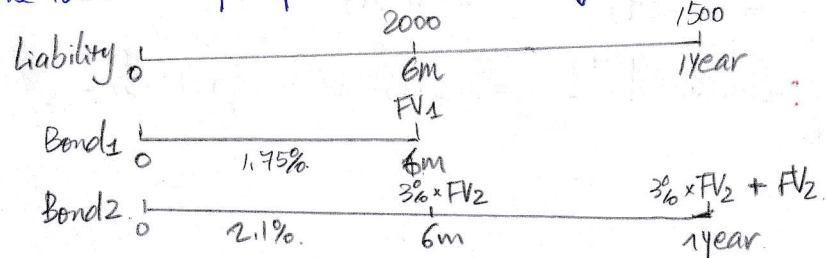 2000 1500
Liability 0 6m 1year
FV1
Bond1 0 1.75% 6m
3% × FV2 3% × FV2 + FV2
Bond2. 0 2.1% 6m 1year